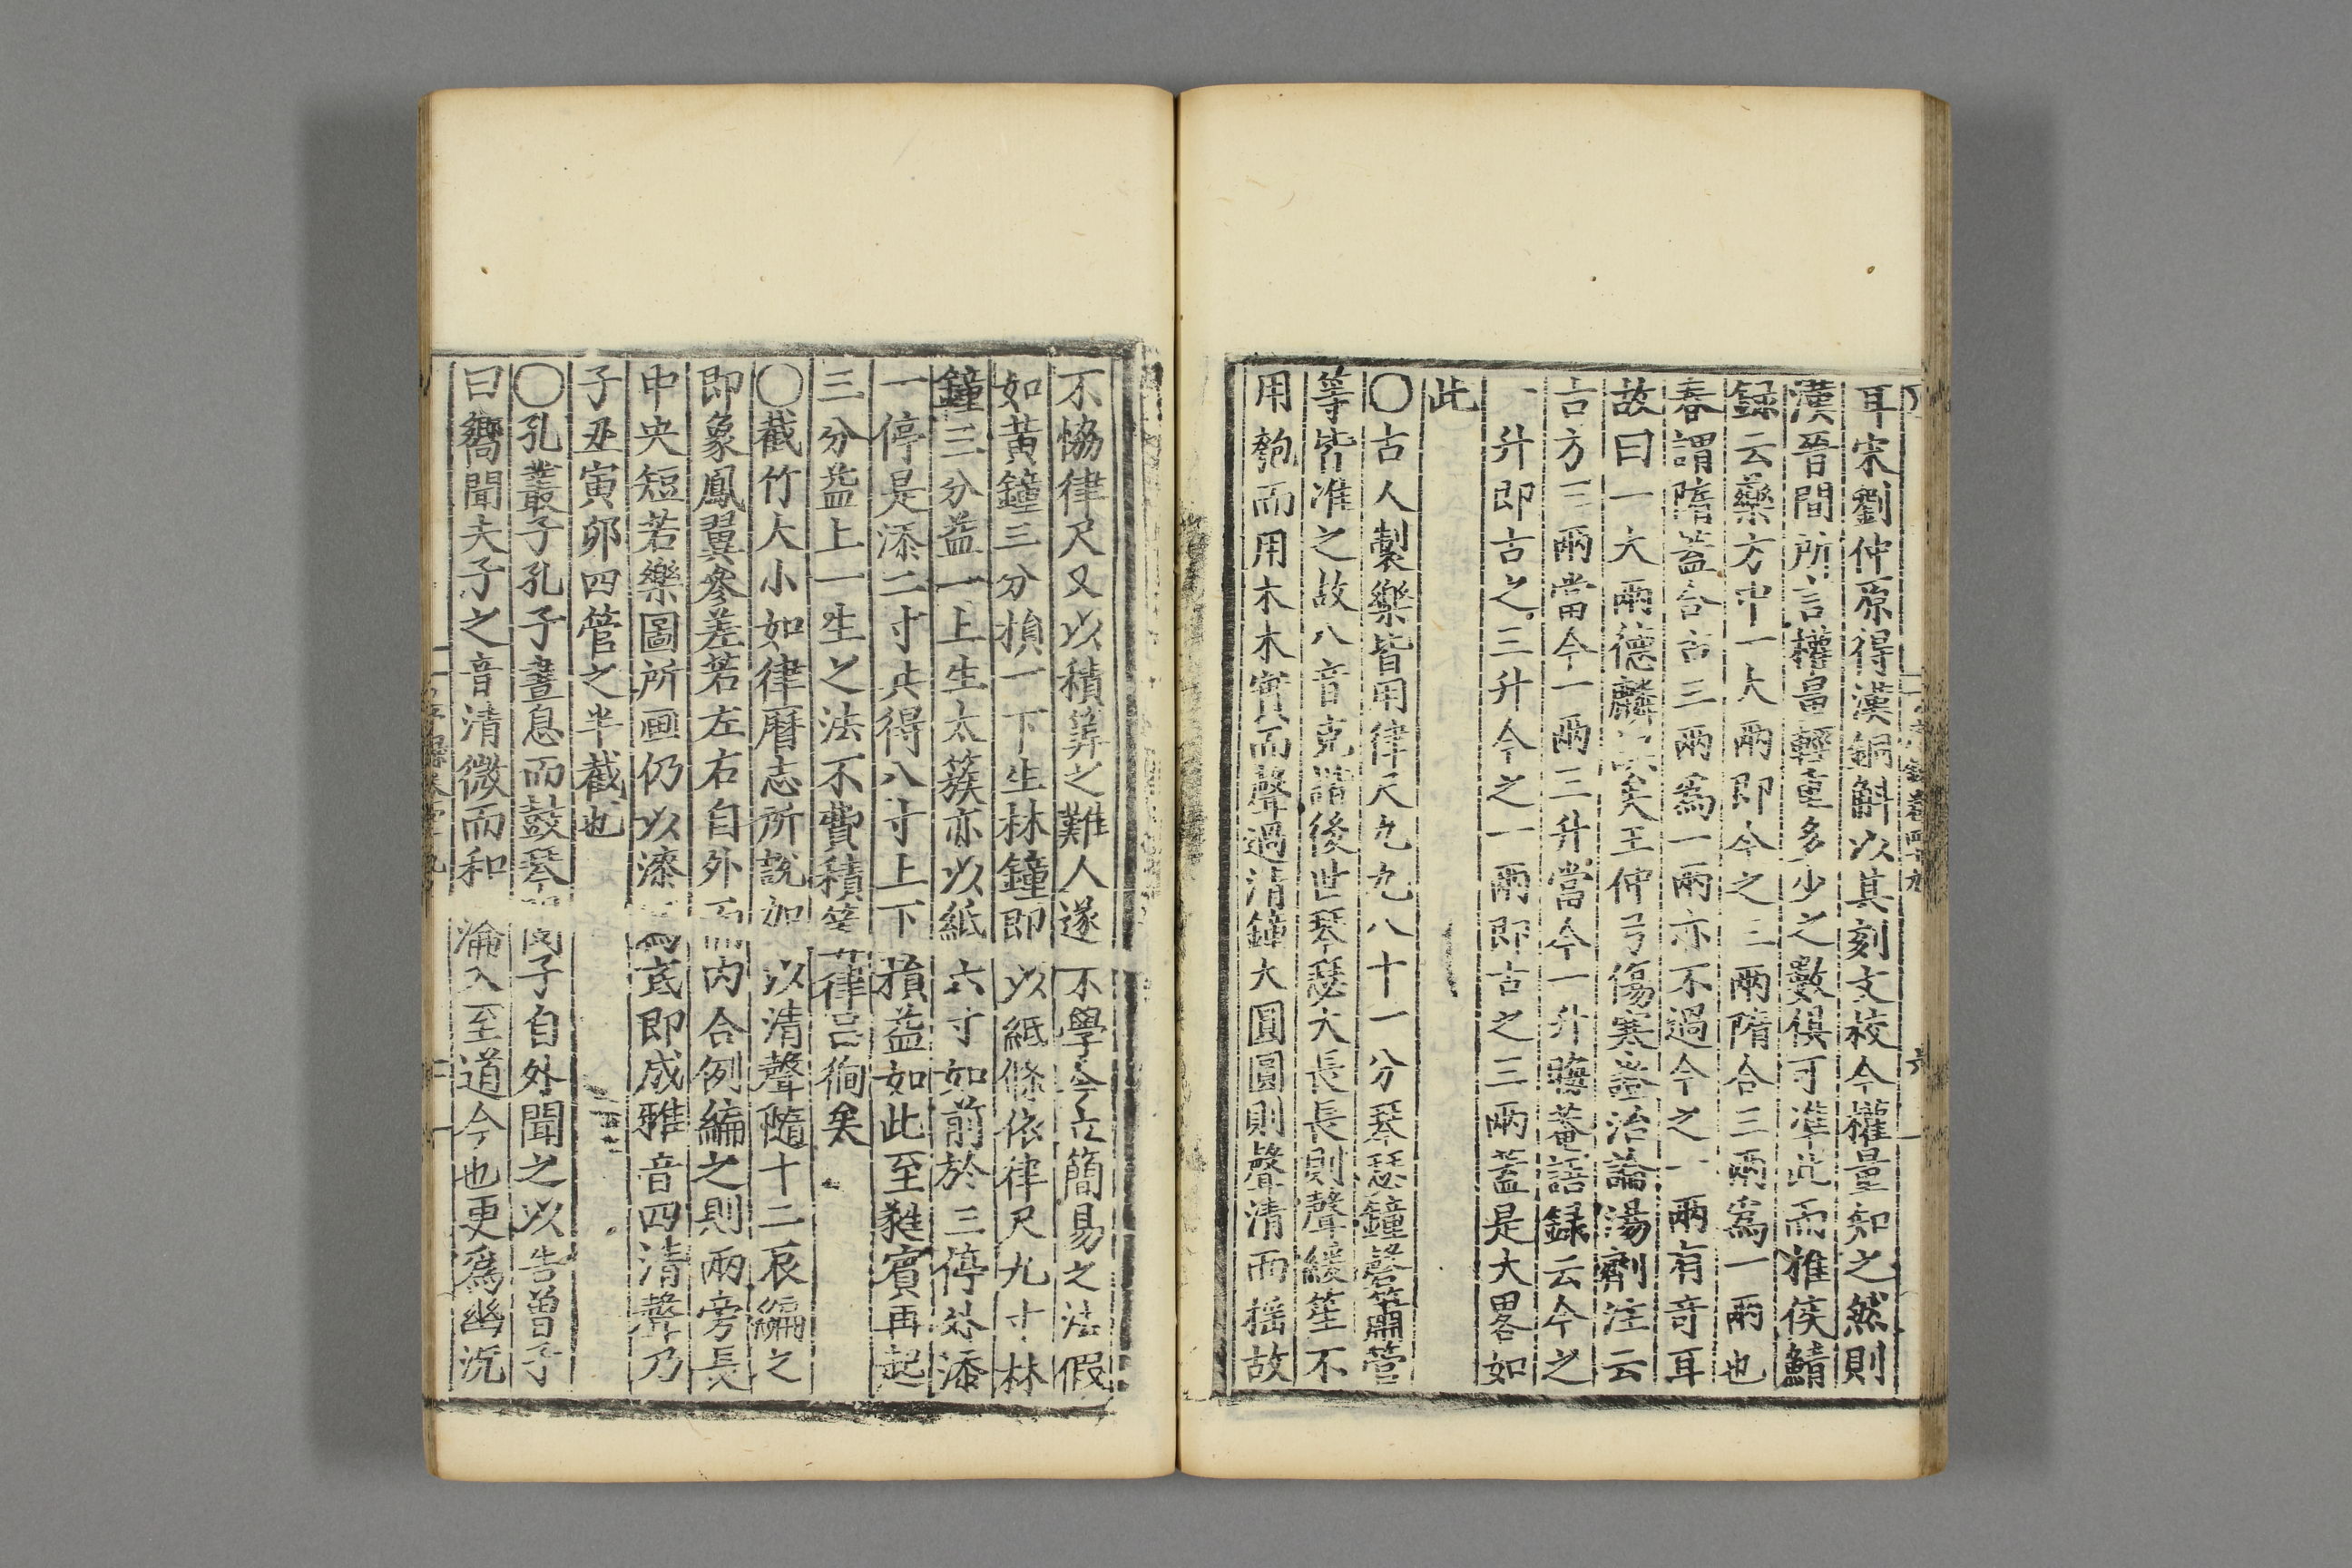 耳宋劉仲原得漢銅斛以其刻文校今權量知之然則
漢晉間所言權畐輕重多少之數俱可准此而雅侯鯖
録云藥方中一大兩即今之三兩隋合三兩爲一兩也
春謂隋蓋合古三兩爲一兩亦不過今之一兩有奇耳
故曰一大兩德麟矣王仲弓傷寒證治論湯劑注云
古方三兩當今一兩三升當今一升晦菴語録云今之
一升即古之三升今之一兩即古之三兩蓋是大畧如
此
〇古人製樂皆用律尺九九八十一分琴瑟鐘磬簫管
等皆准之故八音克諧後世琴瑟大長長則聲緩笙不
用匏而用木木實而聲過清鐘大圓圓則聲清而揺故
不恊律尺又以積筭之難人遂不學今立簡易之法假
如黃鐘三分損一下生林鐘即以紙條依律尺九寸林
鐘三分益一上生太簇亦以紙六寸如前於三停外添
一停是添二寸共得八寸上下損益如此至蕤賓再起
三分益上一生之法不費積筭律呂徇矣
〇截竹大小如律曆志所說如以清聲隨十二辰編之
即象鳳翼參差若左右自外而内合例編之則兩旁長
中央短若樂圖所画仍以漆爲底即成雅音四清聲乃
子丑寅卯四管之半截也
〇孔叢子孔子晝息而鼓琴閔子自外聞之以告曾子
曰嚮聞夫子之音清微而和淪入至道今也更爲幽沉